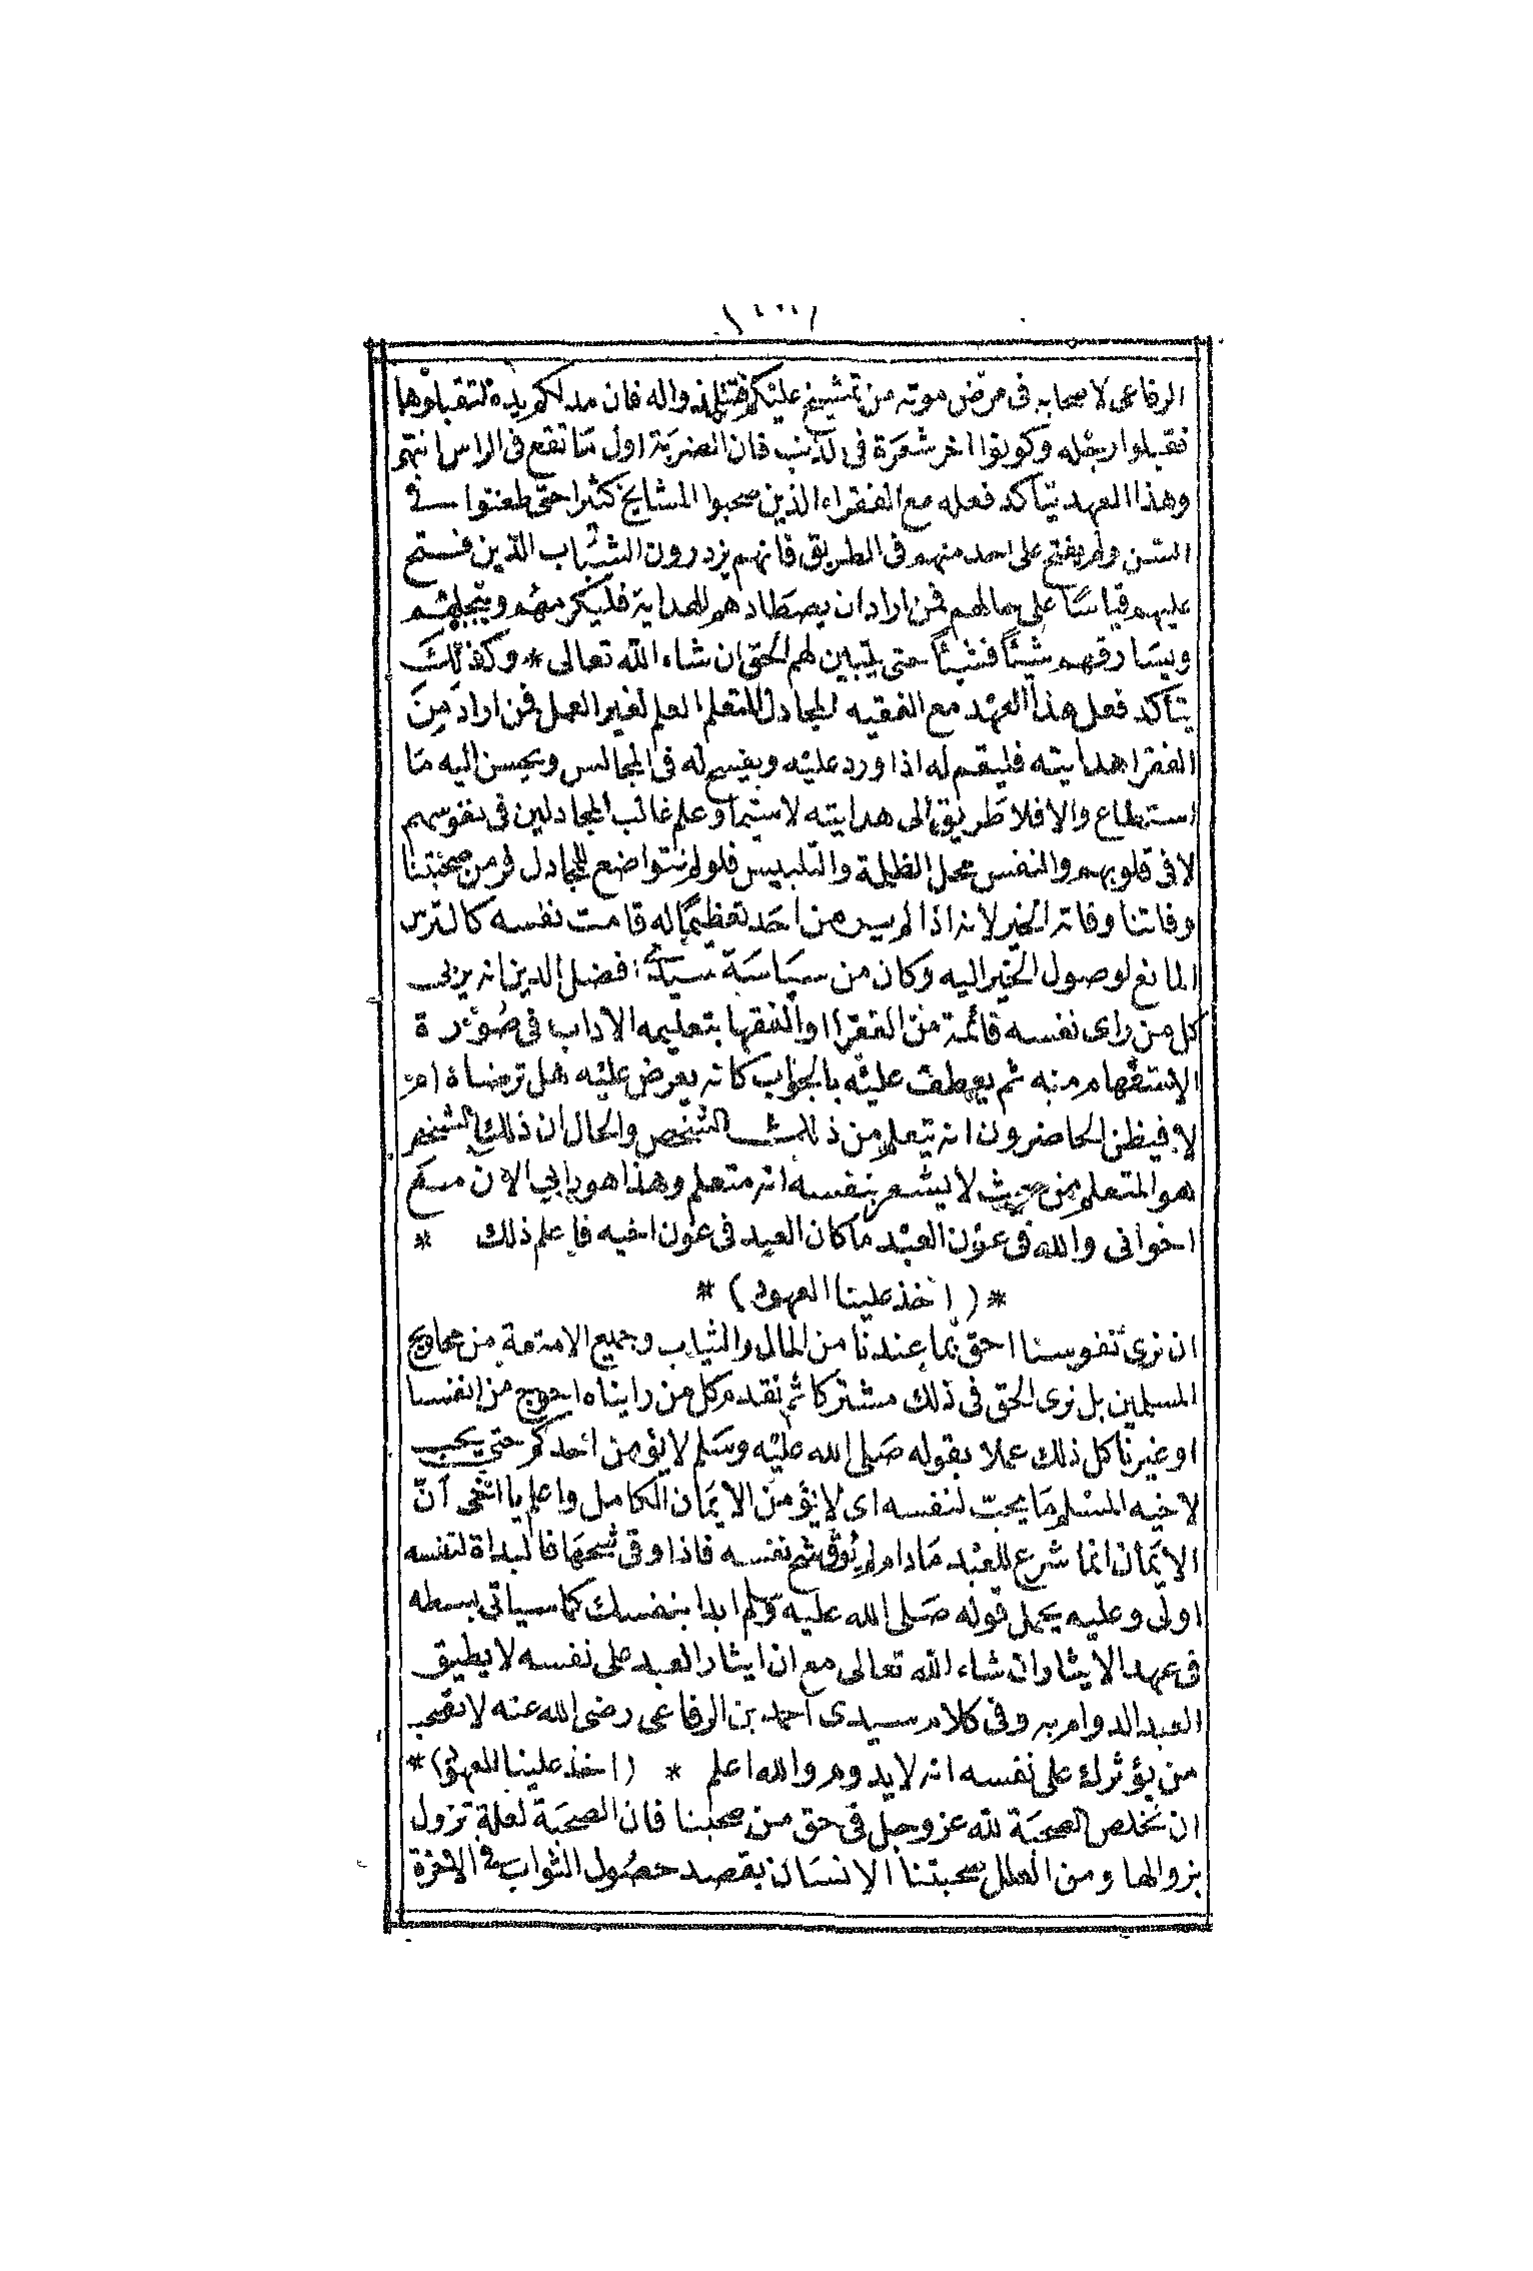 الرفاعى لاصحابه فى مرض موته من تمشيخ عليكم فتتلمذوا له فان مد لكم يده لتقبلوها
فقبلوا رجله وكونوا اخر شعرة فى الذنب فان الضربة اول ما تقع فى الراس انتهى
وهذا العهد يتأكد فعله مع الفقراء الذين صحبوا المشايخ كثيرا حتى طعنوا فى
السن ولم يفتح على احد منهم فى الطريق فانهم يزدرون الشباب الذين فتح
عليهم قياسا على حالهم فمن اراد ان يصطادهم للهداية فليكرمهم ويبجلهم
ويسارقهم شيئا فشيئا حتى يتبين لهم الحق ان شاء الله تعالى * وكذلك
يتأكد فعل هذا العهد مع الفقيه المجادل المتعلم العلم لغير العمل فمن اراد من
الفقرا هدايته فليقم له اذا ورد عليه ويفسح له فى المجالس ويحسن اليه ما
استطاع والا فلا طريق الى هدايته لاسيما وعلم غالب المجادلين فى نفوسهم
لا فى قلوبهم والنفس محل الظلمة والتلبيس فلو لم نتواضع للمجادل فر من صحبتنا
وفاتنا وفاته الخير لانه اذا لم ير من احد تعظيما له قامت نفسه كالترس
المانع لوصول الخير اليه وكان من سياسة سيدى افضل الدين انه يربى
كل من راى نفسه قائمة من الفقرا او الفقها بتعليمه الاداب فى صورة
الاستفهام منه ثم يعطف عليه بالجواب كانه يعرض عليه هل ترضاه ام
لا فيظن الحاضرون انه يتعلم من ذلك الشخص والحال ان ذلك الشخص
هو المتعلم من حيث لا يشعر بنفسه انه متعلم وهذا هو دابى الان مع
اخوانى والله فى عون العبد ما كان العبد فى عون اخيه فاعلم ذلك *
* ( اخذ علينا العهود ) *
ان نرى نفوسنا احق بما عندنا من المال والثياب وجميع الامتعة من محاويج
المسلمين بل نرى الحق فى ذلك مشتركا ثم نقدم كل من رايناه احوج من انفسنا
او غيرنا كل ذلك عملا بقوله صلى الله عليه وسلم لا يؤمن احدكم حتى يحب
لاخيه المسلم ما يحب لنفسه اى لا يؤمن الايمان الكامل واعلم يا اخى ان
الايمان انما شرع للعبد ما دام لم يوق شح نفسه فاذا وقى شحها فالبداة لنفسه
اولى وعليه يحمل قوله صلى الله عليه وسلم ابدا بنفسك كما سياتى بسطه
فى عهد الايثار ان شاء الله تعالى مع ان ايثار العبد على نفسه لا يطيق
العبد الدوام به وفى كلام سيدى احمد بن الرفاعى رضى الله عنه لا تصحب
من يؤثرك على نفسه انه لا يدوم والله اعلم * ( اخذ علينا العهود ) *
ان نخلص الصحبة لله عز وجل فى حق من صحبنا فان الصحبة لعلة تزول
بزوالها ومن العلل صحبتنا الانسان بقصد حصول الثواب فى الاخرة